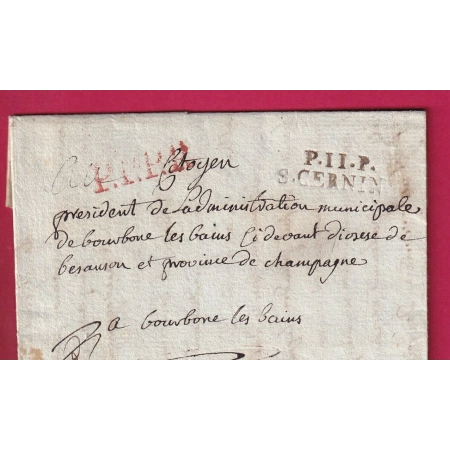 P.P.P.P.
Citoyen
P.11.P.
S.CERNIN
president de l'administration municipale
de bourbone les bains Ci devant diozese de
besanson et province de champagne
a bourbone les bains